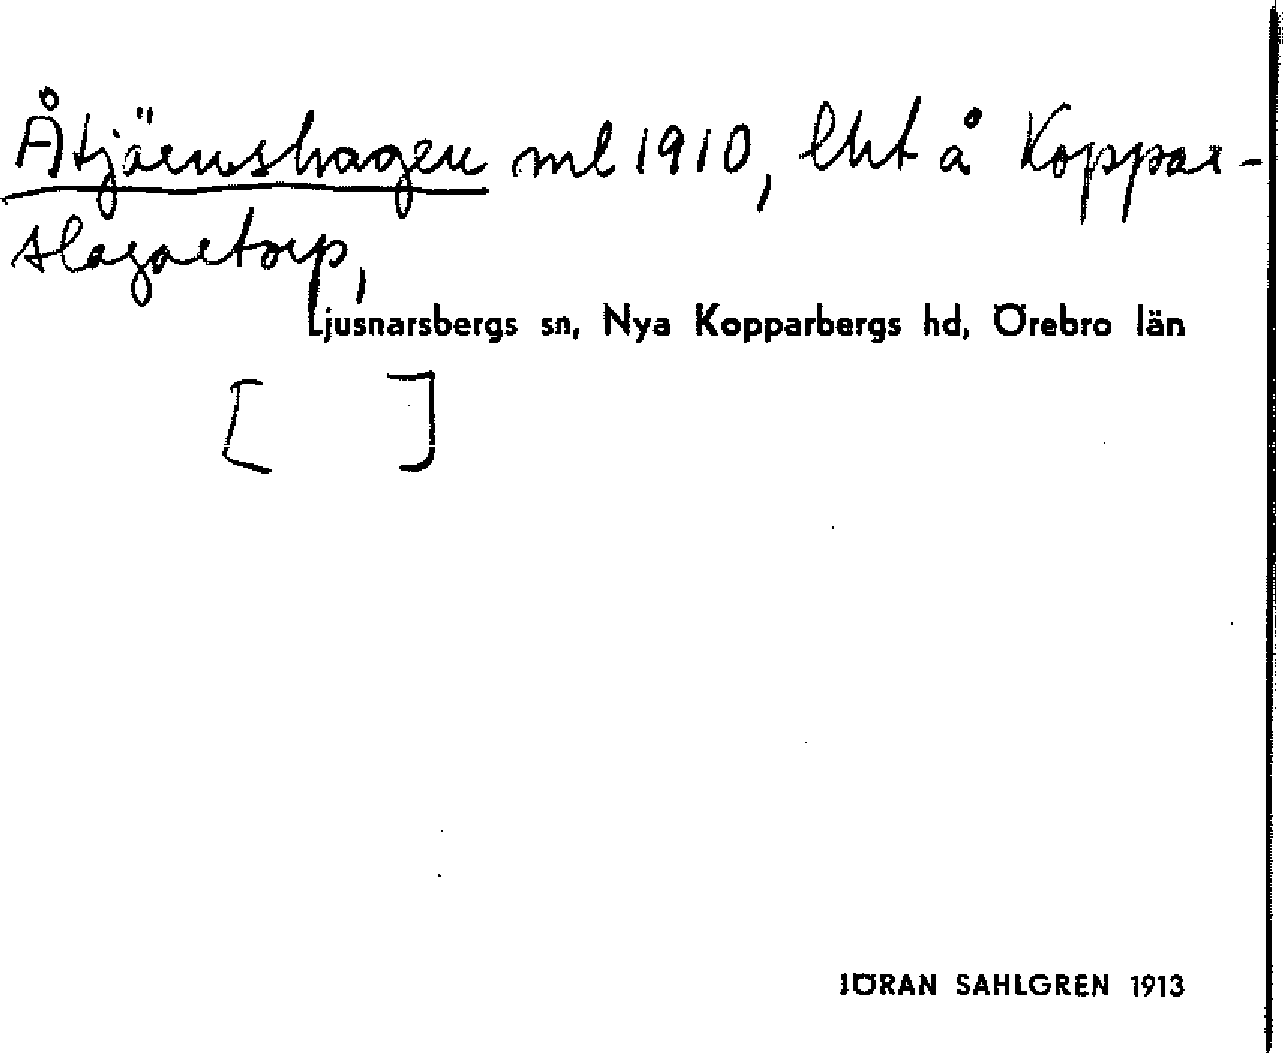 Åtjärnshagen ml 1910, lht å Koppar-
slagartorp,
Ljusnarsbergs sn, Nya Kopparbergs hd, Örebro län
[ ]
JÖRAN SAHLGREN 1913